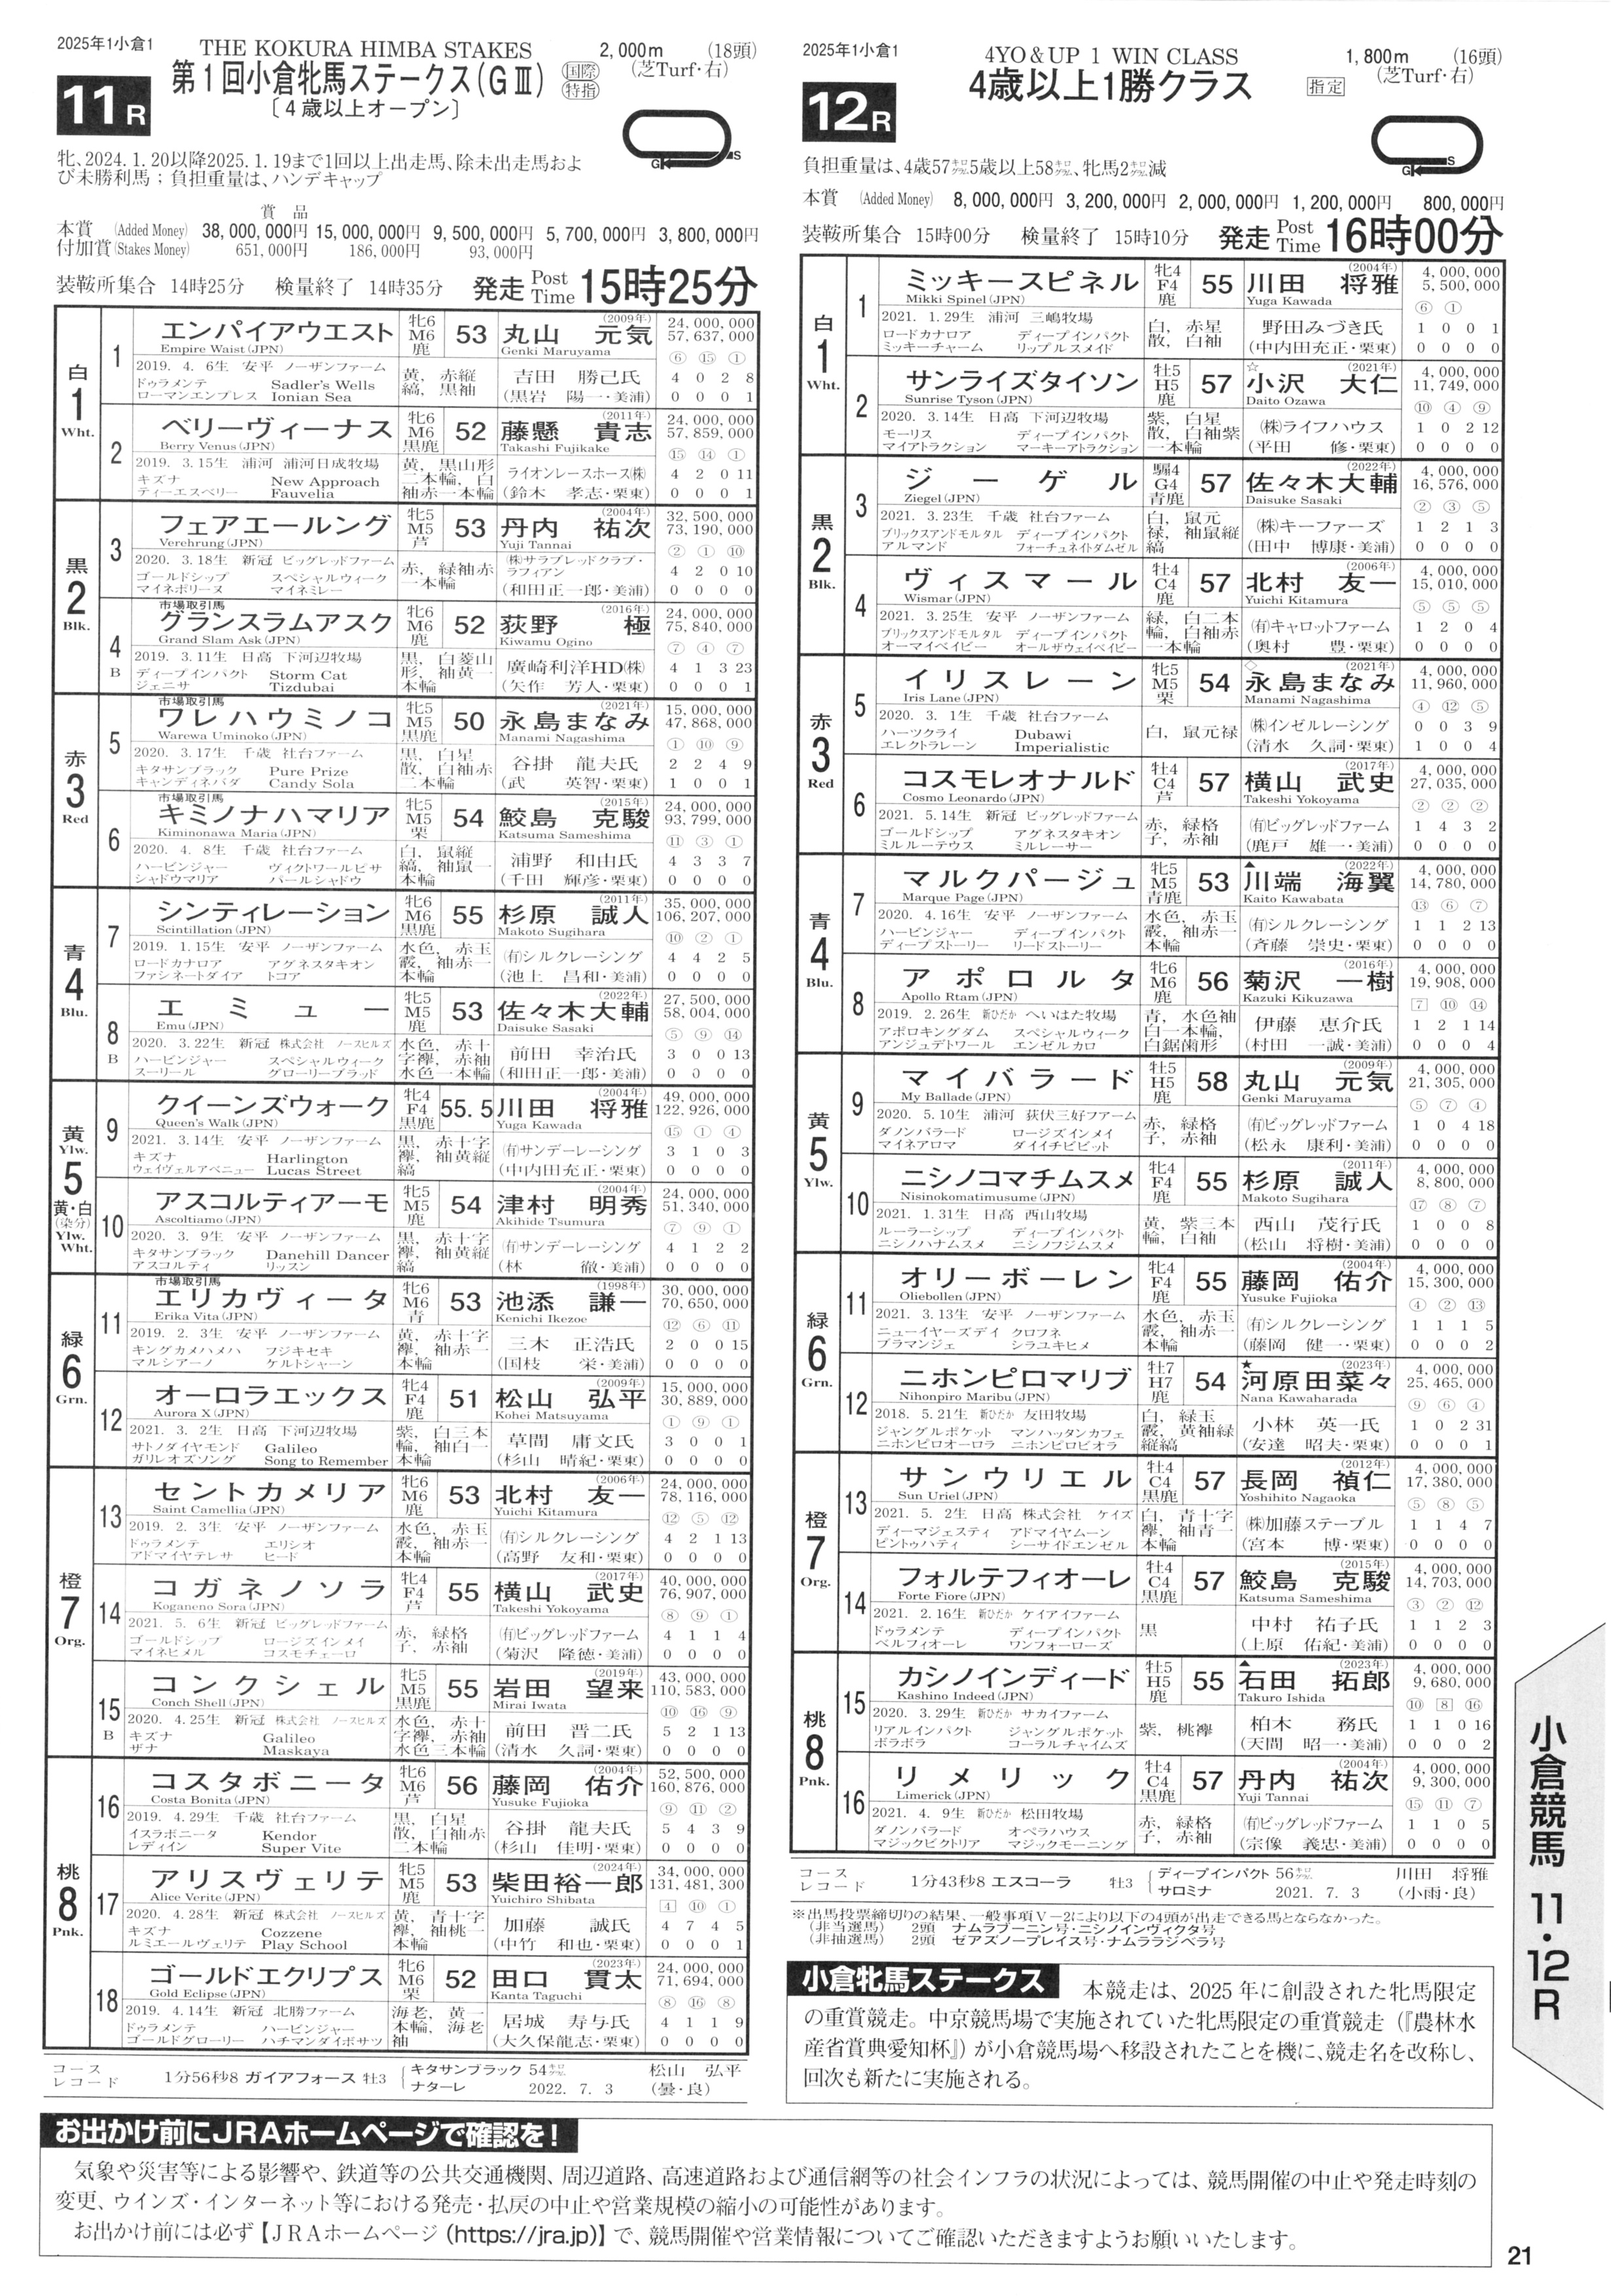 2025年1小倉1
THE KOKURA HIMBA STAKES
2,000m (18頭)
11R
第1回小倉牝馬ステークス(GⅢ)
国際
特指
(芝Turf・右)
〔4歳以上オープン〕
牝、2024.1.20以降2025.1.19まで1回以上出走馬、除未出走馬およ
び未勝利馬；負担重量は、ハンデキャップ
賞品
本賞 (Added Money) 38,000,000円 15,000,000円 9,500,000円 5,700,000円 3,800,000円
付加賞(Stakes Money) 651,000円 186,000円 93,000円
装鞍所集合 14時25分 検量終了 14時35分 発走 Post Time 15時25分
白 1 Wht.
1 エンパイアウエスト Empire Waist(JPN) 牝6 M6 鹿 53 丸山 元気 (2009年) Genki Maruyama 24,000,000 57,637,000
2019. 4. 6生 安平 ノーザンファーム 黄，赤縦縞，黒袖 吉田 勝己氏 ⑥ ⑮ ①
ドゥラメンテ Sadler's Wells 4 0 2 8
ローマンエンプレス Ionian Sea (黒岩 陽一・美浦) 0 0 0 1
2 ベリーヴィーナス Berry Venus(JPN) 牝6 M6 黒鹿 52 藤懸 貴志 (2011年) Takashi Fujikake 24,000,000 57,859,000
2019. 3.15生 浦河 浦河日成牧場 黄，黒山形二本輪，白袖赤一本輪 ライオンレースホース㈱ ⑮ ⑭ ①
キズナ New Approach 4 2 0 11
ティーエスベリー Fauvelia (鈴木 孝志・栗東) 0 0 0 1
黒 2 Blk.
3 フェアエールング Verehrung(JPN) 牝5 M5 芦 53 丹内 祐次 (2004年) Yuji Tannai 32,500,000 73,190,000
2020. 3.18生 新冠 ビッグレッドファーム 赤，緑袖赤一本輪 ㈱サラブレッドクラブ・ラフィアン ② ① ⑩
ゴールドシップ スペシャルウィーク 4 2 0 10
マイネボリーヌ マイネミレー (和田正一郎・美浦) 0 0 0 0
市場取引馬
4 B グランスラムアスク Grand Slam Ask(JPN) 牝6 M6 鹿 52 荻野 極 (2016年) Kiwamu Ogino 24,000,000 75,840,000
2019. 3.11生 日高 下河辺牧場 黒，白菱山形，袖黄一本輪 廣崎利洋HD㈱ ⑦ ④ ⑦
ディープインパクト Storm Cat 4 1 3 23
ジェニサ Tizdubai (矢作 芳人・栗東) 0 0 0 1
赤 3 Red
市場取引馬
5 ワレハウミノコ Warewa Uminoko(JPN) 牝5 M5 黒鹿 50 永島まなみ (2021年) Manami Nagashima 15,000,000 47,868,000
2020. 3.17生 千歳 社台ファーム 黒，白星散，白袖赤二本輪 谷掛 龍夫氏 ① ⑩ ⑨
キタサンブラック Pure Prize 2 2 4 9
キャンディネバダ Candy Sola (武 英智・栗東) 1 0 0 1
市場取引馬
6 キミノナハマリア Kiminonawa Maria(JPN) 牝5 M5 栗 54 鮫島 克駿 (2015年) Katsuma Sameshima 24,000,000 93,799,000
2020. 4. 8生 千歳 社台ファーム 白，鼠縦縞，袖鼠一本輪 浦野 和由氏 ⑪ ③ ①
ハービンジャー ヴィクトワールピサ 4 3 3 7
シャドウマリア パールシャドウ (千田 輝彦・栗東) 0 0 0 0
青 4 Blu.
7 シンティレーション Scintillation(JPN) 牝6 M6 黒鹿 55 杉原 誠人 (2011年) Makoto Sugihara 35,000,000 106,207,000
2019. 1.15生 安平 ノーザンファーム 水色，赤玉霰，袖赤一本輪 ㈲シルクレーシング ⑩ ② ①
ロードカナロア アグネスタキオン 4 4 2 5
ファシネートダイア トコア (池上 昌和・美浦) 0 0 0 0
8 B エミュー Emu(JPN) 牝5 M5 鹿 53 佐々木大輔 (2022年) Daisuke Sasaki 27,500,000 58,004,000
2020. 3.22生 新冠 株式会社 ノースヒルズ 水色，赤十字襷，赤袖水色一本輪 前田 幸治氏 ⑤ ⑨ ⑭
ハービンジャー スペシャルウィーク 3 0 0 13
スーリール グローリーブラッド (和田正一郎・美浦) 0 0 0 0
黄 Ylw. 5 黄・白 (染分) Ylw. Wht.
9 クイーンズウォーク Queen's Walk(JPN) 牝4 F4 黒鹿 55.5 川田 将雅 (2004年) Yuga Kawada 49,000,000 122,926,000
2021. 3.14生 安平 ノーザンファーム 黒，赤十字襷，袖黄縦縞 ㈲サンデーレーシング ⑮ ① ④
キズナ Harlington 3 1 0 3
ウェイヴェルアベニュー Lucas Street (中内田充正・栗東) 0 0 0 0
10 アスコルティアーモ Ascoltiamo(JPN) 牝5 M5 鹿 54 津村 明秀 (2004年) Akihide Tsumura 24,000,000 51,340,000
2020. 3. 9生 安平 ノーザンファーム 黒，赤十字襷，袖黄縦縞 ㈲サンデーレーシング ⑦ ⑨ ①
キタサンブラック Danehill Dancer 4 1 2 2
アスコルティ リッスン (林 徹・美浦) 0 0 0 0
緑 6 Grn.
市場取引馬
11 エリカヴィータ Erika Vita(JPN) 牝6 M6 青 53 池添 謙一 (1998年) Kenichi Ikezoe 30,000,000 70,650,000
2019. 2. 3生 安平 ノーザンファーム 黄，赤十字襷，袖赤一本輪 三木 正浩氏 ⑫ ⑥ ⑪
キングカメハメハ フジキセキ 2 0 0 15
マルシアーノ ケルトシャーン (国枝 栄・美浦) 0 0 0 0
12 オーロラエックス Aurora X(JPN) 牝4 F4 鹿 51 松山 弘平 (2009年) Kohei Matsuyama 15,000,000 30,889,000
2021. 3. 2生 日高 下河辺牧場 紫，白三本輪，袖白一本輪 草間 庸文氏 ① ⑨ ①
サトノダイヤモンド Galileo 3 0 0 1
ガリレオズソング Song to Remember (杉山 晴紀・栗東) 0 0 0 0
橙 7 Org.
13 セントカメリア Saint Camellia(JPN) 牝6 M6 鹿 53 北村 友一 (2006年) Yuichi Kitamura 24,000,000 78,116,000
2019. 2. 3生 安平 ノーザンファーム 水色，赤玉霰，袖赤一本輪 ㈲シルクレーシング ⑫ ⑤ ⑫
ドゥラメンテ エリシオ 4 2 1 13
アドマイヤテレサ ヒード (高野 友和・栗東) 0 0 0 0
14 コガネノソラ Koganeno Sora(JPN) 牝4 F4 芦 55 横山 武史 (2017年) Takeshi Yokoyama 40,000,000 76,907,000
2021. 5. 6生 新冠 ビッグレッドファーム 赤，緑格子，赤袖 ㈲ビッグレッドファーム ⑧ ⑨ ①
ゴールドシップ ロージズインメイ 4 1 1 4
マイネヒメル コスモチェーロ (菊沢 隆徳・美浦) 0 0 0 0
15 B コンクシェル Conch Shell(JPN) 牝5 M5 黒鹿 55 岩田 望来 (2019年) Mirai Iwata 43,000,000 110,583,000
2020. 4.25生 新冠 株式会社 ノースヒルズ 水色，赤十字襷，赤袖水色三本輪 前田 晋二氏 ⑩ ⑯ ⑨
キズナ Galileo 5 2 1 13
ザナ Maskaya (清水 久詞・栗東) 0 0 0 0
桃 8 Pnk.
16 コスタボニータ Costa Bonita(JPN) 牝6 M6 芦 56 藤岡 佑介 (2004年) Yusuke Fujioka 52,500,000 160,876,000
2019. 4.29生 千歳 社台ファーム 黒，白星散，白袖赤二本輪 谷掛 龍夫氏 ⑨ ⑪ ②
イスラボニータ Kendor 5 4 3 9
レディイン Super Vite (杉山 佳明・栗東) 0 0 0 0
17 アリスヴェリテ Alice Verite(JPN) 牝5 M5 鹿 53 柴田裕一郎 (2024年) Yuichiro Shibata 34,000,000 131,481,300
2020. 4.28生 新冠 株式会社 ノースヒルズ 黄，青十字襷，袖桃一本輪 加藤 誠氏 4 ⑩ ①
キズナ Cozzene 4 7 4 5
ルミエールヴェリテ Play School (中竹 和也・栗東) 0 0 0 1
18 ゴールドエクリプス Gold Eclipse(JPN) 牝6 M6 栗 52 田口 貫太 (2023年) Kanta Taguchi 24,000,000 71,694,000
2019. 4.14生 新冠 北勝ファーム 海老，黄一本輪，海老袖 居城 寿与氏 ⑧ ⑯ ⑧
ドゥラメンテ ハービンジャー 4 1 1 9
ゴールドグローリー ハチマンダイボサツ (大久保龍志・栗東) 0 0 0 0
コースレコード 1分56秒8 ガイアフォース 牡3 キタサンブラック ナターレ 54キログラム 2022. 7. 3 松山 弘平 (曇・良)
2025年1小倉1
4YO＆UP 1 WIN CLASS
1,800m (16頭)
12R
4歳以上1勝クラス
指定
(芝Turf・右)
負担重量は、4歳57キログラム5歳以上58キログラム、牝馬2キログラム減
本賞 (Added Money) 8,000,000円 3,200,000円 2,000,000円 1,200,000円 800,000円
装鞍所集合 15時00分 検量終了 15時10分 発走 Post Time 16時00分
白 1 Wht.
1 ミッキースピネル Mikki Spinel(JPN) 牝4 F4 鹿 55 川田 将雅 (2004年) Yuga Kawada 4,000,000 5,500,000
2021. 1.29生 浦河 三嶋牧場 白，赤星散，白袖 野田みづき氏 ⑥ ①
ロードカナロア ディープインパクト 1 0 0 1
ミッキーチャーム リップルスメイド (中内田充正・栗東) 0 0 0 0
2 サンライズタイソン Sunrise Tyson(JPN) 牡5 H5 鹿 57 ☆小沢 大仁 (2021年) Daito Ozawa 4,000,000 11,749,000
2020. 3.14生 日高 下河辺牧場 紫，白星散，白袖紫一本輪 ㈱ライフハウス ⑩ ④ ⑨
モーリス ディープインパクト 1 0 2 12
マイアトラクション マーキーアトラクション (平田 修・栗東) 0 0 0 0
黒 2 Blk.
3 ジーゲル Ziegel(JPN) 騸4 G4 青鹿 57 佐々木大輔 (2022年) Daisuke Sasaki 4,000,000 16,576,000
2021. 3.23生 千歳 社台ファーム 白，鼠元禄，袖鼠縦縞 ㈱キーファーズ ② ③ ⑤
ブリックスアンドモルタル ディープインパクト 1 2 1 3
アルマンド フォーチュネイトダムゼル (田中 博康・美浦) 0 0 0 0
4 ヴィスマール Wismar(JPN) 牡4 C4 鹿 57 北村 友一 (2006年) Yuichi Kitamura 4,000,000 15,010,000
2021. 3.25生 安平 ノーザンファーム 緑，白二本輪，白袖赤一本輪 ㈲キャロットファーム ⑤ ⑤ ⑤
ブリックスアンドモルタル ディープインパクト 1 2 0 4
オーマイベイビー オールザウェイベイビー (奥村 豊・栗東) 0 0 0 0
赤 3 Red
5 イリスレーン Iris Lane(JPN) 牝5 M5 栗 54 ◇永島まなみ (2021年) Manami Nagashima 4,000,000 11,960,000
2020. 3. 1生 千歳 社台ファーム 白，鼠元禄 ㈱インゼルレーシング ④ ⑫ ⑤
ハーツクライ Dubawi 0 0 3 9
エレクトラレーン Imperialistic (清水 久詞・栗東) 1 0 0 4
6 コスモレオナルド Cosmo Leonardo(JPN) 牡4 C4 芦 57 横山 武史 (2017年) Takeshi Yokoyama 4,000,000 27,035,000
2021. 5.14生 新冠 ビッグレッドファーム 赤，緑格子，赤袖 ㈲ビッグレッドファーム ② ② ②
ゴールドシップ アグネスタキオン 1 4 3 2
ミルルーテウス ミルレーサー (鹿戸 雄一・美浦) 0 0 0 0
青 4 Blu.
7 マルクパージュ Marque Page(JPN) 牝5 M5 青鹿 53 ▲川端 海翼 (2022年) Kaito Kawabata 4,000,000 14,780,000
2020. 4.16生 安平 ノーザンファーム 水色，赤玉霰，袖赤一本輪 ㈲シルクレーシング ⑬ ⑥ ⑦
ハービンジャー ディープインパクト 1 1 2 13
ディープストーリー リードストーリー (斉藤 崇史・栗東) 0 0 0 0
8 アポロルタ Apollo Rtam(JPN) 牝6 M6 鹿 56 菊沢 一樹 (2016年) Kazuki Kikuzawa 4,000,000 19,908,000
2019. 2.26生 新ひだか へいはた牧場 青，水色袖白一本輪，白鋸歯形 伊藤 恵介氏 7 ⑩ ⑭
アポロキングダム スペシャルウィーク 1 2 1 14
アンジュデトワール エンゼルカロ (村田 一誠・美浦) 0 0 0 4
黄 5 Ylw.
9 マイバラード My Ballade(JPN) 牡5 H5 鹿 58 丸山 元気 (2009年) Genki Maruyama 4,000,000 21,305,000
2020. 5.10生 浦河 荻伏三好フアーム 赤，緑格子，赤袖 ㈲ビッグレッドファーム ⑤ ⑦ ④
ダノンバラード ロージズインメイ 1 0 4 18
マイネアロマ ダイイチビビット (松永 康利・美浦) 0 0 0 0
10 ニシノコマチムスメ Nisinokomatimusume(JPN) 牝4 F4 鹿 55 杉原 誠人 (2011年) Makoto Sugihara 4,000,000 8,800,000
2021. 1.31生 日高 西山牧場 黄，紫三本輪，白袖 西山 茂行氏 ⑰ ⑧ ⑦
ルーラーシップ ディープインパクト 1 0 0 8
ニシノハナムスメ ニシノフジムスメ (松山 将樹・美浦) 0 0 0 0
緑 6 Grn.
11 オリーボーレン Oliebollen(JPN) 牝4 F4 鹿 55 藤岡 佑介 (2004年) Yusuke Fujioka 4,000,000 15,300,000
2021. 3.13生 安平 ノーザンファーム 水色，赤玉霰，袖赤一本輪 ㈲シルクレーシング ④ ② ⑬
ニューイヤーズデイ クロフネ 1 1 1 5
ブラマンジェ シラユキヒメ (藤岡 健一・栗東) 0 0 0 2
12 ニホンピロマリブ Nihonpiro Maribu(JPN) 牡7 H7 鹿 54 ★河原田菜々 (2023年) Nana Kawaharada 4,000,000 25,465,000
2018. 5.21生 新ひだか 友田牧場 白，緑玉霰，黄袖緑縦縞 小林 英一氏 ⑨ ⑥ ④
ジャングルポケット マンハッタンカフェ 1 0 2 31
ニホンピロオーロラ ニホンピロビオラ (安達 昭夫・栗東) 0 0 0 1
橙 7 Org.
13 サンウリエル Sun Uriel(JPN) 牡4 C4 黒鹿 57 長岡 禎仁 (2012年) Yoshihito Nagaoka 4,000,000 17,380,000
2021. 5. 2生 日高 株式会社 ケイズ 白，青十字襷，袖青一本輪 ㈱加藤ステーブル ⑤ ⑧ ⑤
ディーマジェスティ アドマイヤムーン 1 1 4 7
ビントゥハティ シーサイドエンゼル (宮本 博・栗東) 0 0 0 0
14 フォルテフィオーレ Forte Fiore(JPN) 牡4 C4 黒鹿 57 鮫島 克駿 (2015年) Katsuma Sameshima 4,000,000 14,703,000
2021. 2.16生 新ひだか ケイアイファーム 黒 中村 祐子氏 ③ ② ⑫
ドゥラメンテ ディープインパクト 1 1 2 3
ベルフィオーレ ワンフォーローズ (上原 佑紀・美浦) 0 0 0 0
桃 8 Pnk.
15 カシノインディード Kashino Indeed(JPN) 牡5 H5 鹿 55 ▲石田 拓郎 (2023年) Takuro Ishida 4,000,000 9,680,000
2020. 3.29生 新ひだか サカイファーム 紫，桃襷 柏木 務氏 ⑩ 8 ⑯
リアルインパクト ジャングルポケット 1 1 0 16
ボラボラ コーラルチャイムズ (天間 昭一・美浦) 0 0 0 2
16 リメリック Limerick(JPN) 牡4 C4 黒鹿 57 丹内 祐次 (2004年) Yuji Tannai 4,000,000 9,300,000
2021. 4. 9生 新ひだか 松田牧場 赤，緑格子，赤袖 ㈲ビッグレッドファーム ⑮ ⑪ ⑦
ダノンバラード オペラハウス 1 1 0 5
マジックビクトリア マジックモーニング (宗像 義忠・美浦) 0 0 0 0
コースレコード 1分43秒8 エスコーラ 牡3 ディープインパクト サロミナ 56キログラム 2021. 7. 3 川田 将雅 (小雨・良)
※出馬投票締切りの結果、一般事項Ⅴ－2により以下の4頭が出走できる馬とならなかった。
(非当選馬) 2頭 ナムラブーニン号・ニシノインヴィクタ号
(非抽選馬) 2頭 ゼアズノープレイス号・ナムララジベラ号
小倉牝馬ステークス 本競走は、2025年に創設された牝馬限定
の重賞競走。中京競馬場で実施されていた牝馬限定の重賞競走（『農林水
産省賞典愛知杯』）が小倉競馬場へ移設されたことを機に、競走名を改称し、
回次も新たに実施される。
小倉競馬 11・12R
お出かけ前にJRAホームページで確認を！
気象や災害等による影響や、鉄道等の公共交通機関、周辺道路、高速道路および通信網等の社会インフラの状況によっては、競馬開催の中止や発走時刻の
変更、ウインズ・インターネット等における発売・払戻の中止や営業規模の縮小の可能性があります。
お出かけ前には必ず【JRAホームページ (https://jra.jp)】で、競馬開催や営業情報についてご確認いただきますようお願いいたします。
21